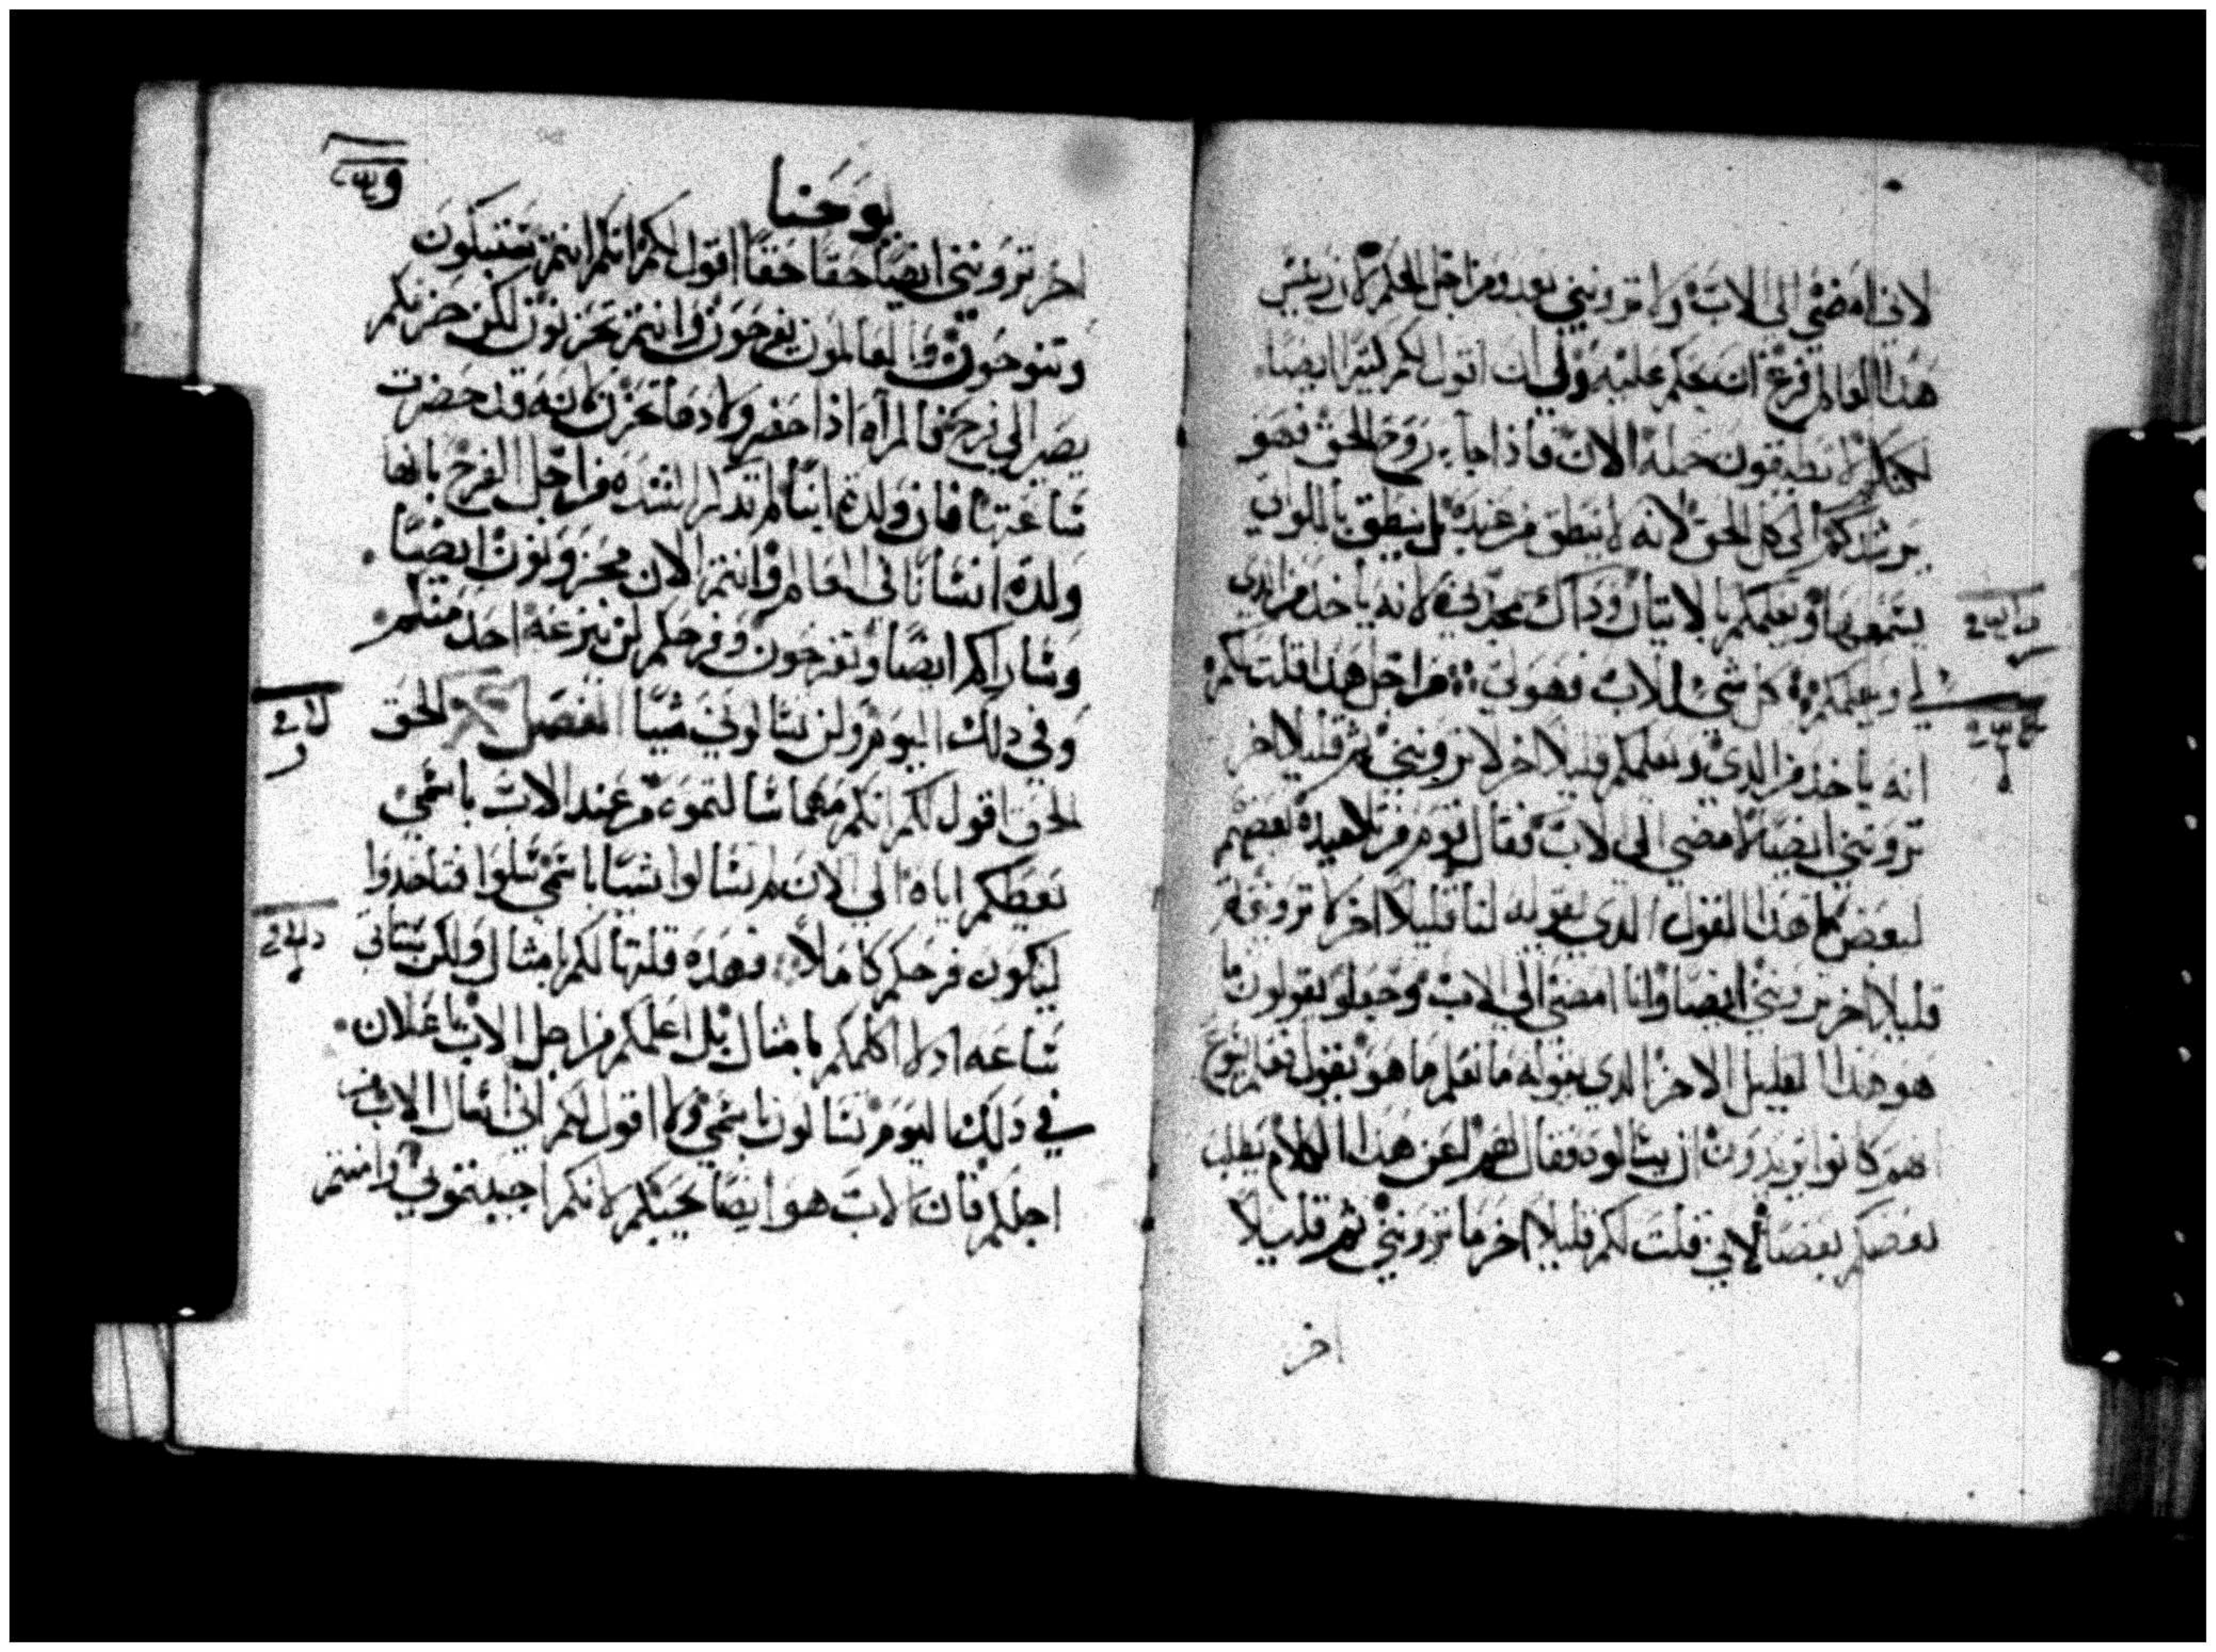 لاني امضي الي الاب ولا تروننى بعد ومن اجل الحكم لان رييس
هذا العالم فرغ ان يحكم عليه ولي ان اقول لكم كتيرا ايضا
لكنكم لا تطيقون حمله الان فاذا جآء روح الحق فهو
يرشدكم الى كل الحق لانه لا ينطق من عنده بل ينطق بالذي
يسمعه ويعلمكم بالاتيات وداك يمجدني لانه ياخد من الدي
لي ويعلمكم كل شي للاب فهو لي من اجل هذا قلت لكم
انه ياخد من الدي ويعلمكم قليلا اخر لا تروننى ثم قليلا اخر
تروننى ايضا لامضي الي الاب فقال قوم من تلاميده بعضهم
لبعض ما هدا القول الدي يقوله لنا قليلا اخر لا تروني ثم
قليلا اخر تروننى ايضا وانا امضي الي الاب وجعلو يقولون ما
هو هذا القليل الاخر الدي يقوله ما نعلم ما هو يقول فعلم يسوع
انهم كانوا يريدون ان يسالوه فقال لهم اعن هدا الكلام يطلب
بعضكم بعضا لاني قلت لكم قليلا اخر ما تروننى ثم قليلا
اخر
يوحنا
اخر تروننى ايضا حقا حقا اقول لكم انكم انتم ستبكون
وتنوحون والعالمون يفرحون وانتم تحزنون لكن حزنكم
يصير الي فرح فالمرآه اذا حضر ولادها تحزن لانه قد حضرت
ساعتها فان ولدت ابنا لم تدكر الشده من اجل الفرح بانها
ولدة انسانا في العالم وانتم الان محزونون ايضا
وساراكم ايضا وتفرحون وفرحكم لن ينزعه احد منكم
وفي دلك اليوم ولن تسالوني شيا الفصل الحق
الحق اقول لكم انكم مهما سالتموه من عند الاب باسمي
يعطكم اياه الي الان لم تسالوا شيا باسمي سلوا فتاخدوا
ليكون فرحكم كاملا فهده قلتها لكم بامثال ولكن ستاتي
ساعه اد لا اكلمكم بامثال بل اعلمكم من اجل الاب باعلان
في دلك اليوم تسالون باسمي ولا اقول لكم اني اسال الاب من
اجلكم فان الاب هو ايضا يحبكم لانكم احببتموني وامنتم